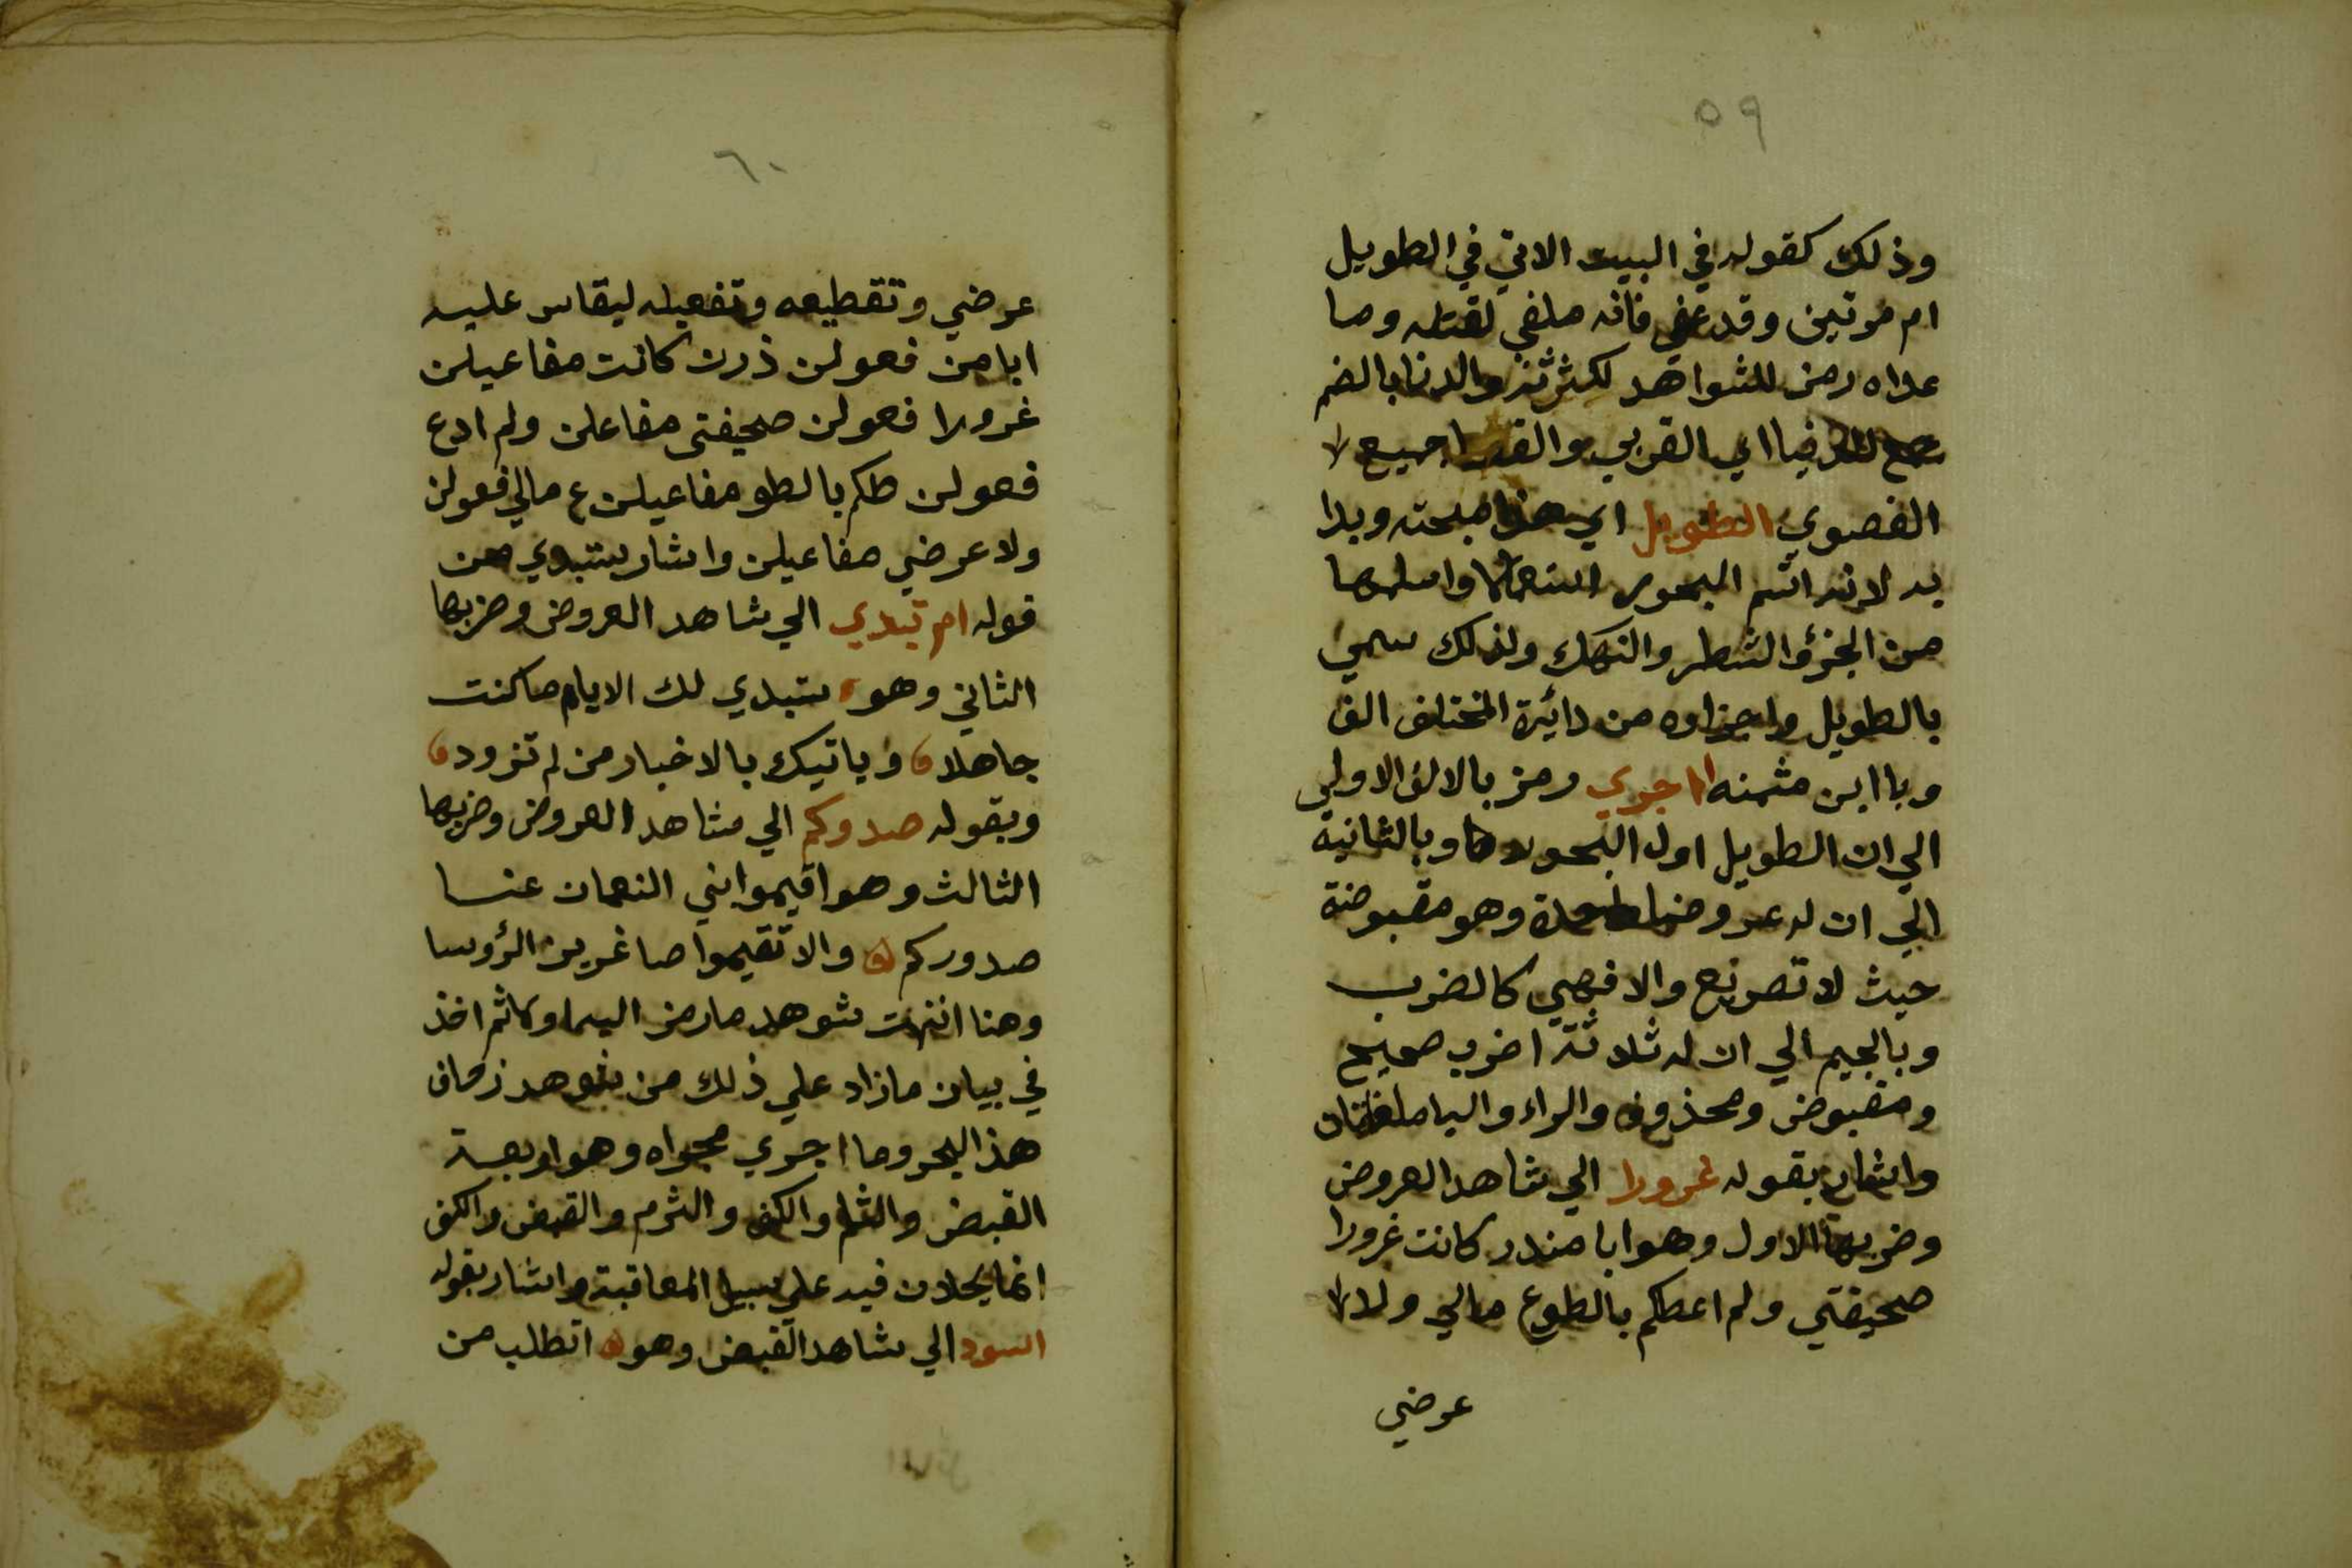 ٥٩
وذلك كقوله في البيت الاتي في الطويل
ام موتين وقد عفي فانه ملغي لقتله وما
عداه رمز للشواهد لكثرتنز والدنا بالضم
اي القربي والقصوا جميع لا
القصوي الطويل اي هذا مبحثه وبدا
به لانه اتم البحور استعمالا واسلمها
من الجزؤ والشطر والنهك ولذلك سمي
بالطويل واجزاوه من دائرة المختلف الف
وبا اين مثمنه ااجري رمز بالالف الاولي
الي ان الطويل اول البحور وبالثانية
الي ان له عروضا واحدة وهو مقبوضة
حيث لا تصريع والا فهي كالضرب
وبالجيم الي ان له ثلاثة اضرب صحيح
ومقبوض ومحذوف والراء واليا ملغاتان
واشار بقوله غرورا الي شاهد العروض
وضربها الاول وهو ابا منذر كانت غرورا
صحيفتي ولم اعطكم بالطوع مالي ولا لا
عرضي
٦٠
عرضي وتقطيعه وتفعيله ليقاس عليه
ابا من فعولن ذرن كانت مفاعيلن
غرورا فعولن صحيفتي مفاعلن ولم ادع
فعولن طكم بالطو مفاعيلن ع مالي فعولن
ولا عرضي مفاعيلن واشار ستبدي من
قوله ام تبدي الي شاهد العروض وضربها
الثاني وهو ستبدي لك الايام ما كنت
جاهلا وياتيك بالاخبار من لم تزود
وبقوله صدوركم الي شاهد العروض وضربها
الثالث وهو اقيموا بني النعمان عنا
صدوركم والا تقيموا صاغرين الرؤسا
وهنا انتهت شوهد ما رمز اليها وكاثم اخذ
في بيان مازاد علي ذلك من شوهد زحاف
هذ البحر وما اجري مجراه وهو اربعة
القبض والثلم والكف والثرم والقبض والكف
انما يحلان فيه علي سبيل المعاقبة واشار بقوله
اسود الي شاهد القبض وهو اتطلب من